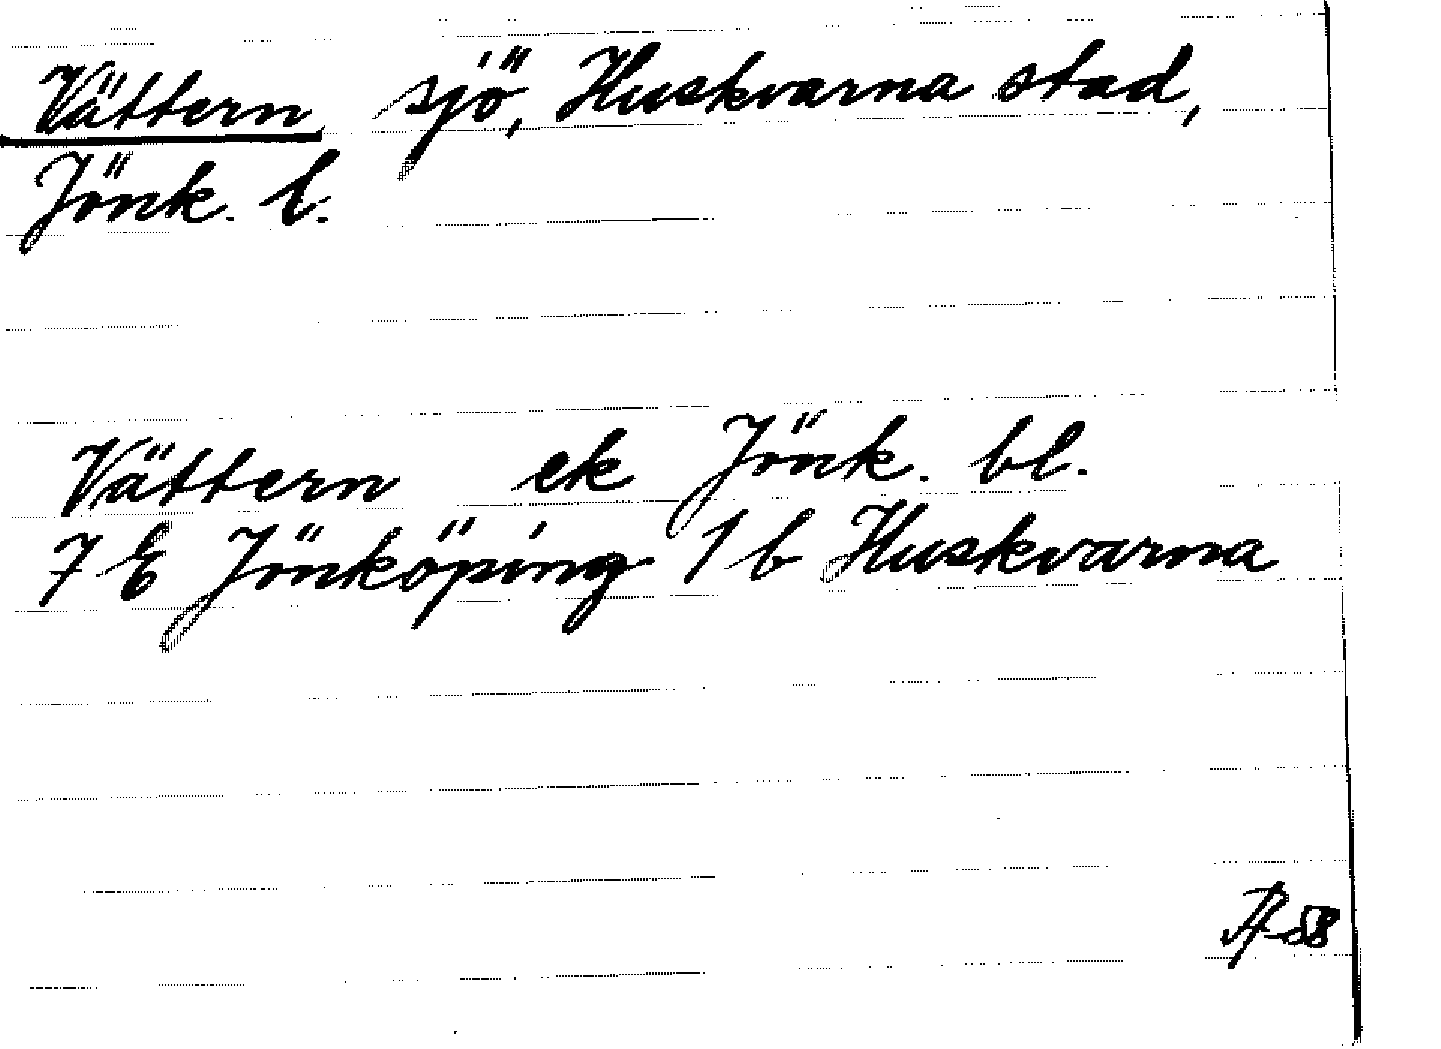 Vättern sjö, Huskvarna stad,
Jönk. l.
Vättern ek Jönk. bl.
7 E Jönköping 1 b Huskvarna
58